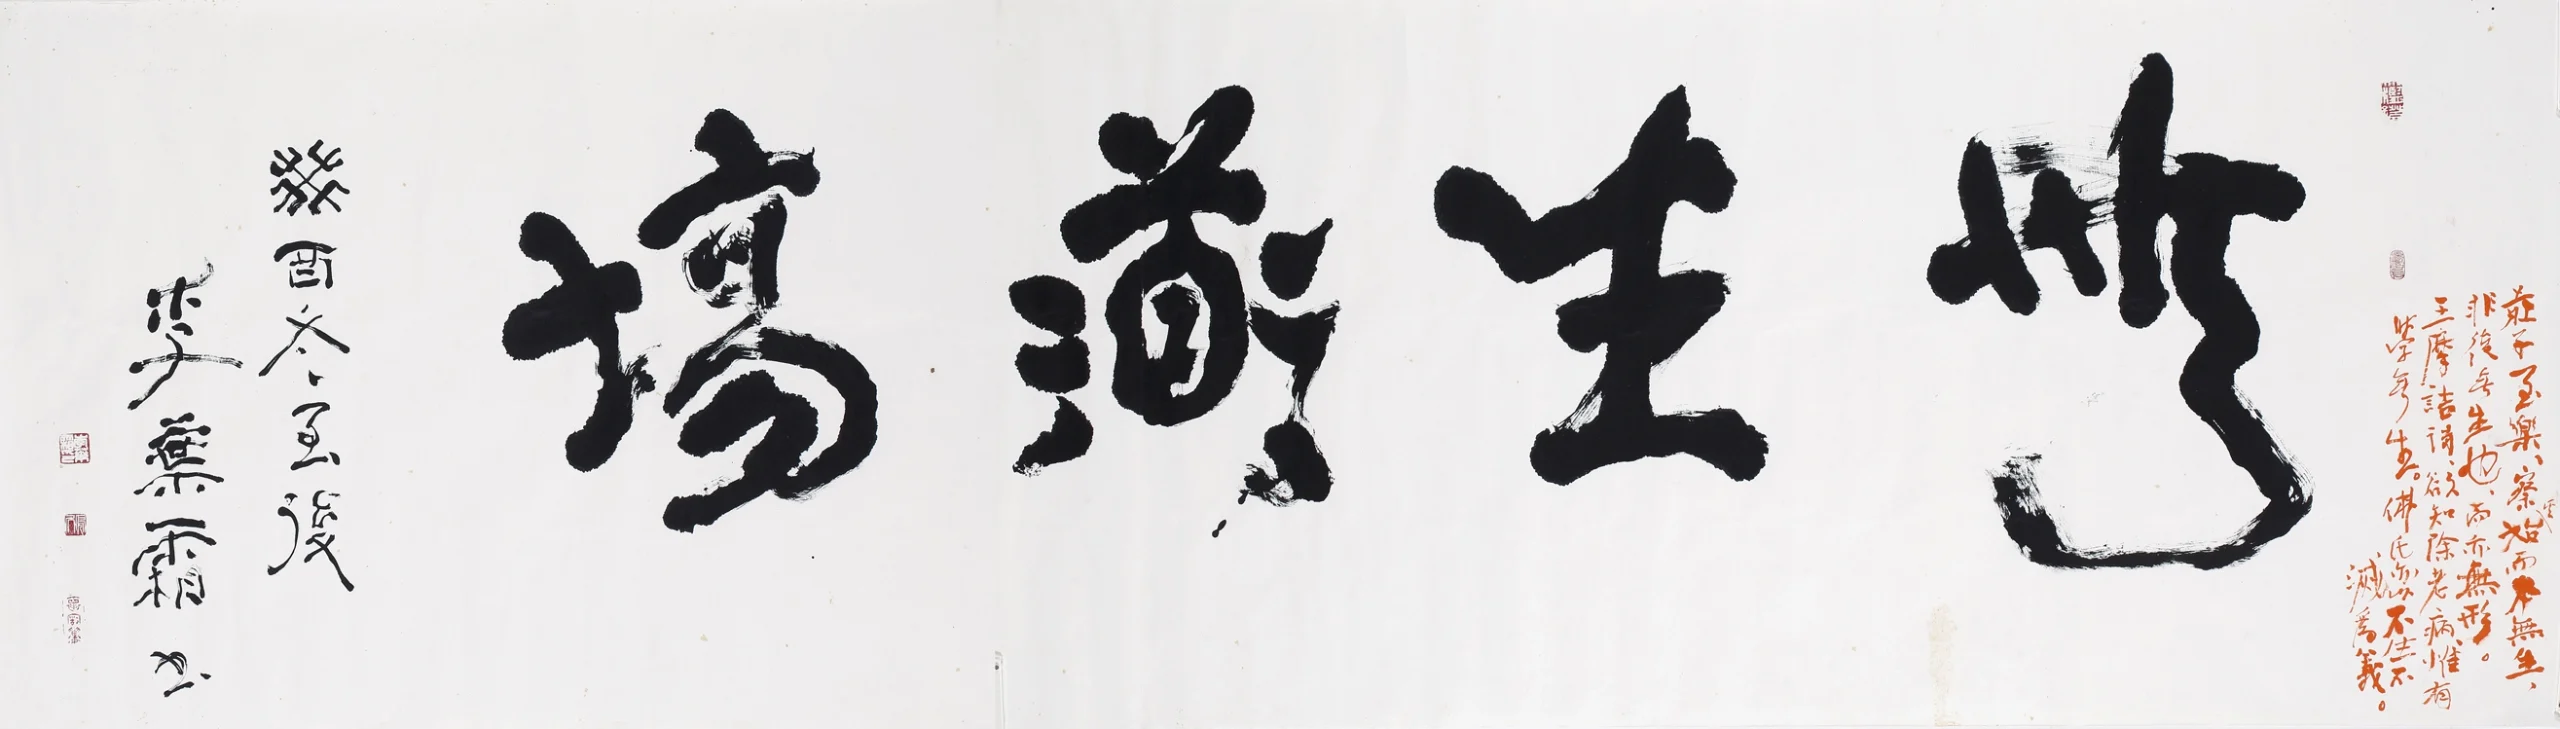 莊子至樂、察其始而本無生、
非徒無生也、而亦無形。
王摩詰詩、欲知除老病、惟有
學無生。佛氏亦以不生不
滅為義。
無生道場
癸酉冬至後
李葉霜书